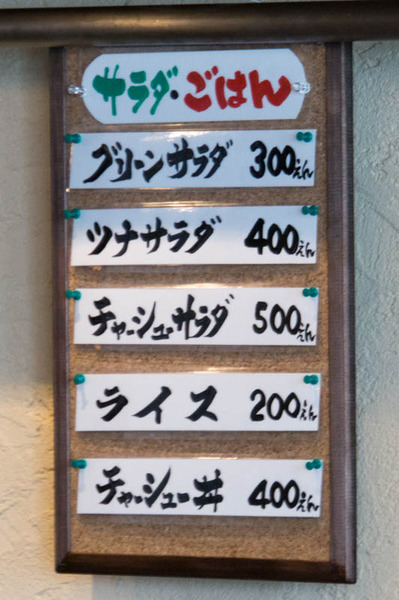 サラダ・ごはん
グリーンサラダ 300えん
ツナサラダ 400えん
チャーシューサラダ 500えん
ライス 200えん
チャーシュー丼 400えん